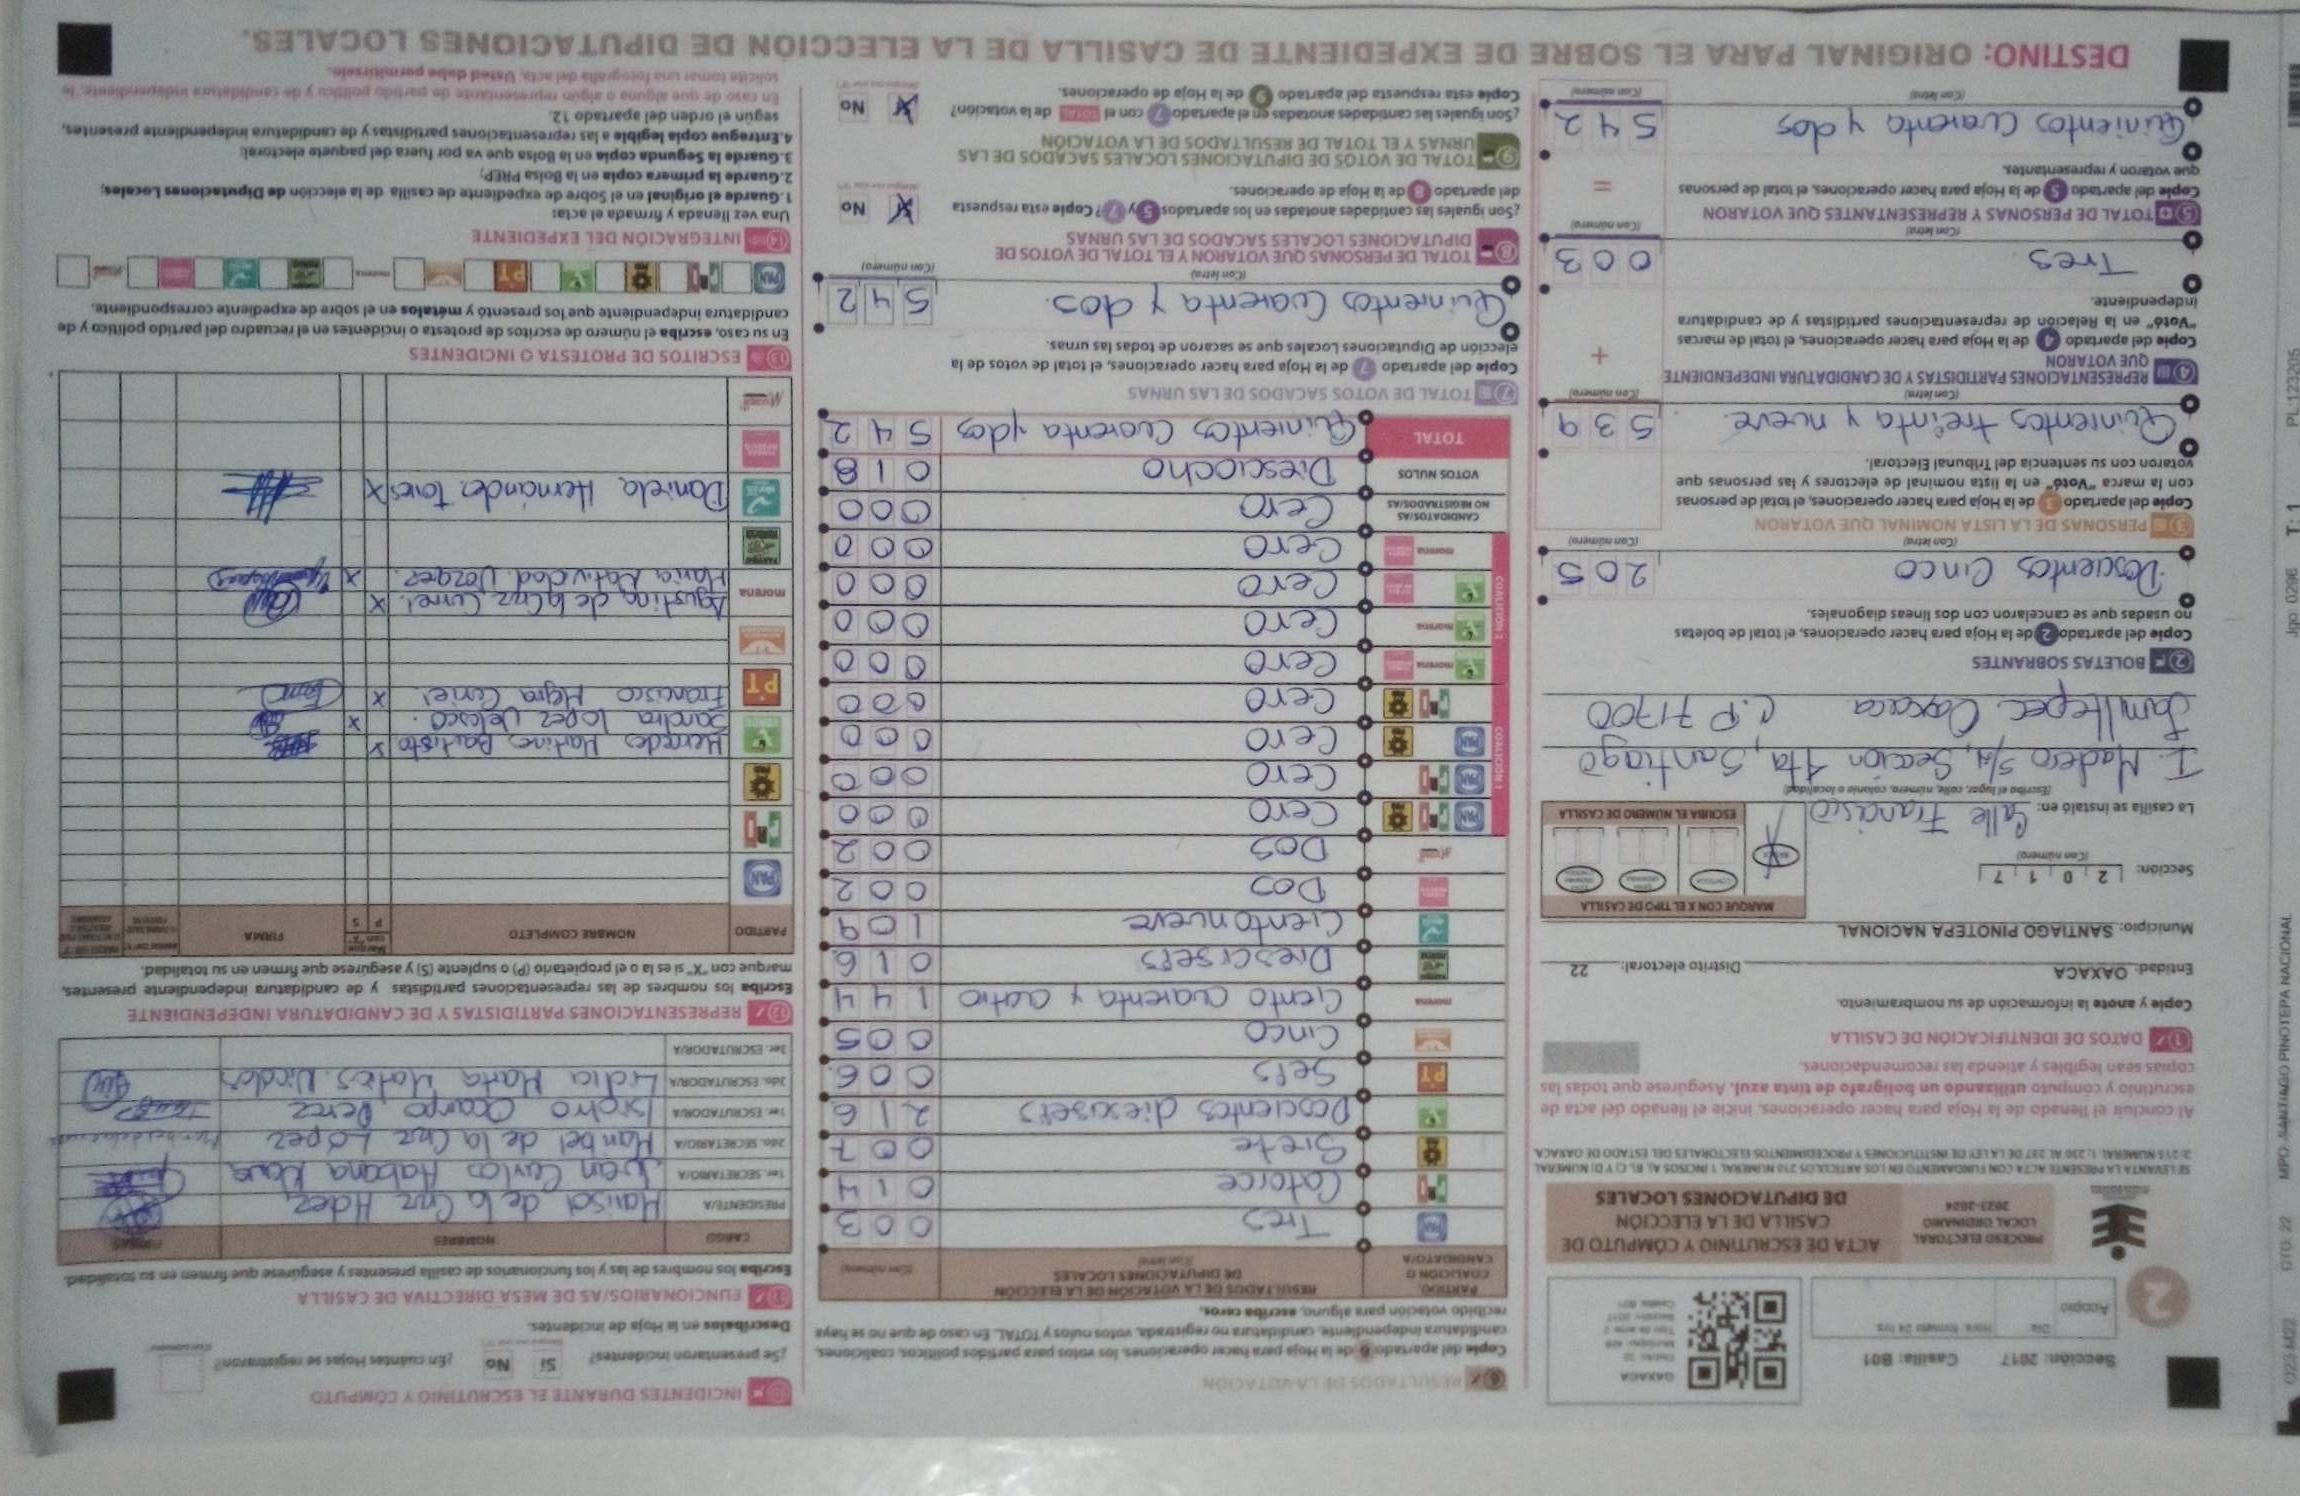 2
Sección: 2017 Casilla: B01
Acopio
Día Hora: formato 24 hrs
OAXACA
PROCESO ELECTORAL
LOCAL ORDINARIO
2023-2024
ACTA DE ESCRUTINIO Y CÓMPUTO DE
CASILLA DE LA ELECCIÓN
DE DIPUTACIONES LOCALES
Al concluir el llenado de la Hoja para hacer operaciones, inicie el llenado del acta de
escrutinio y cómputo utilizando un bolígrafo de tinta azul. Asegúrese que todas las
copias sean legibles y atienda las recomendaciones.
1 DATOS DE IDENTIFICACIÓN DE CASILLA
Copie y anote la información de su nombramiento.
Entidad: OAXACA Distrito electoral: 22
Municipio: SANTIAGO PINOTEPA NACIONAL
Sección: 2 0 1 7
(Con número)
MARQUE CON X EL TIPO DE CASILLA
ESCRIBA EL NÚMERO DE CASILLA
La casilla se instaló en: Calle Francisco
(Escriba el lugar, calle, número, colonia o localidad)
I. Madero S/N, Sección 1ta, Santiago
Jamiltepec Oaxaca. C.P 71700
2 BOLETAS SOBRANTES
Copie del apartado 2 de la Hoja para hacer operaciones, el total de boletas
no usadas que se cancelaron con dos líneas diagonales.
Doscientos Cinco 2 0 5
(Con letra) (Con número)
3 PERSONAS DE LA LISTA NOMINAL QUE VOTARON
Copie del apartado 3 de la Hoja para hacer operaciones, el total de personas
con la marca "Votó" en la lista nominal de electores y las personas que
votaron con su sentencia del Tribunal Electoral.
Quinientos treinta y nueve. 5 3 9
(Con letra) (Con número)
4 REPRESENTACIONES PARTIDISTAS Y DE CANDIDATURA INDEPENDIENTE
QUE VOTARON
Copie del apartado 4 de la Hoja para hacer operaciones, el total de marcas
"Votó" en la Relación de representaciones partidistas y de candidatura
independiente.
+
Tres 0 0 3
(Con letra) (Con número)
5 TOTAL DE PERSONAS Y REPRESENTANTES QUE VOTARON
Copie del apartado 5 de la Hoja para hacer operaciones, el total de personas
que votaron y representantes.
=
Quinientos Cuarenta y dos 5 4 2
(Con letra) (Con número)
6 RESULTADOS DE LA VOTACIÓN
Copie del apartado 6 de la Hoja para hacer operaciones, los votos para partidos políticos, coaliciones,
candidatura independiente, candidatura no registrada, votos nulos y TOTAL. En caso de que no se haya
recibido votación para alguno, escriba ceros.
PARTIDO,
COALICIÓN O
CANDIDATO/A
RESULTADOS DE LA VOTACIÓN DE LA ELECCIÓN
DE DIPUTACIONES LOCALES
(Con letra) (Con número)
PAN Tres 0 0 3
PRI Catorce 0 1 4
PRD Siete 0 0 7
VERDE Doscientos diesiseis 2 1 6
PT Seis 0 0 6
Cinco 0 0 5
morena Ciento cuarenta y cuatro 1 4 4
Diesciseis 0 1 6
Ciento nueve 1 0 9
Dos 0 0 2
Dos 0 0 2
COALICIÓN 1
PAN PRI PRD Cero 0 0 0
PAN PRI Cero 0 0 0
PAN PRD Cero 0 0 0
PRI PRD Cero 0 0 0
COALICIÓN 2
morena Cero 0 0 0
morena Cero 0 0 0
Cero 0 0 0
morena Cero 0 0 0
CANDIDATOS/AS
NO REGISTRADOS/AS Cero 0 0 0
VOTOS NULOS Diesciocho 0 1 8
TOTAL Quinientos Cuarenta y dos 5 4 2
7 TOTAL DE VOTOS SACADOS DE LAS URNAS
Copie del apartado 7 de la Hoja para hacer operaciones, el total de votos de la
elección de Diputaciones Locales que se sacaron de todas las urnas.
Quinientos Cuarenta y dos. 5 4 2
(Con letra) (Con número)
8 TOTAL DE PERSONAS QUE VOTARON Y EL TOTAL DE VOTOS DE
DIPUTACIONES LOCALES SACADOS DE LAS URNAS
¿Son iguales las cantidades anotadas en los apartados 5 y 7? Copie esta respuesta
del apartado 8 de la Hoja de operaciones.
X No
9 TOTAL DE VOTOS DE DIPUTACIONES LOCALES SACADOS DE LAS
URNAS Y EL TOTAL DE RESULTADOS DE LA VOTACIÓN
¿Son iguales las cantidades anotadas en el apartado 7 con el TOTAL de la votación?
Copie esta respuesta del apartado 9 de la Hoja de operaciones.
X No
10 INCIDENTES DURANTE EL ESCRUTINIO Y CÓMPUTO
¿Se presentaron incidentes? Sí No ¿En cuántas Hojas se registraron?
Descríbalos en la Hoja de incidentes.
11 FUNCIONARIOS/AS DE MESA DIRECTIVA DE CASILLA
Escriba los nombres de las y los funcionarios de casilla presentes y asegúrese que firmen en su totalidad.
CARGO NOMBRES FIRMAS
PRESIDENTE/A Marisol de la Cruz Hdez
1er. SECRETARIO/A Juan Carlos Habana Nava
2do. SECRETARIO/A Maribel de la Cruz López
1er. ESCRUTADOR/A Isidro Ocampo Perez
2do. ESCRUTADOR/A Lidia Marta Matias
3er. ESCRUTADOR/A
12 REPRESENTACIONES PARTIDISTAS Y DE CANDIDATURA INDEPENDIENTE
Escriba los nombres de las representaciones partidistas y de candidatura independiente presentes,
marque con "X" si es la o el propietario (P) o suplente (S) y asegúrese que firmen en su totalidad.
PARTIDO NOMBRE COMPLETO Marque con "X" P S FIRMA
PAN
PRI
PRD
VERDE Mercedes Martinez Bautista X
Sandra Lopez Velasco. X
PT Francisco Mejia Coriel X
morena Agustina de la Cruz Curiel. X
Maria Natividad Vazquez. X
Daniela Hernandez Torres X
13 ESCRITOS DE PROTESTA O INCIDENTES
En su caso, escriba el número de escritos de protesta o incidentes en el recuadro del partido político y de
candidatura independiente que los presentó y métalos en el sobre de expediente correspondiente.
PAN PRI PRD VERDE PT morena
14 INTEGRACIÓN DEL EXPEDIENTE
Una vez llenada y firmada el acta:
1.Guarde el original en el Sobre de expediente de casilla de la elección de Diputaciones Locales;
2.Guarde la primera copia en la Bolsa PREP;
3.Guarde la Segunda copia en la Bolsa que va por fuera del paquete electoral;
4.Entregue copia legible a las representaciones partidistas y de candidatura independiente presentes,
según el orden del apartado 12.
En caso de que alguna o algún representante de partido político y de candidatura independiente, le
solicite tomar una fotografía del acta, Usted debe permitírselo.
DESTINO: ORIGINAL PARA EL SOBRE DE EXPEDIENTE DE CASILLA DE LA ELECCIÓN DE DIPUTACIONES LOCALES.
O23 M22 DTO: 22 MPO: SANTIAGO PINOTEPA NACIONAL Jgo: 0296 T: 1 PL:123205